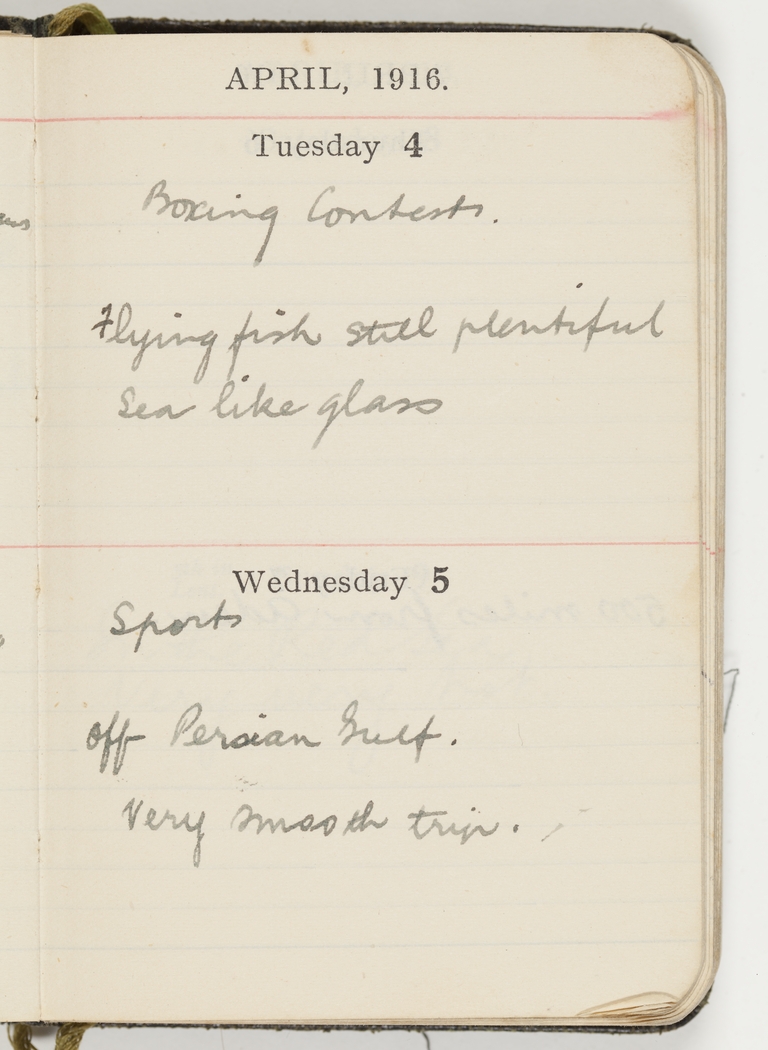 APRIL, 1916.
Tuesday 4
Boxing Contests.
Flying fish still plentiful
Sea like glass
Wednesday 5
Sports
off Persian Gulf.
Very smooth trip.